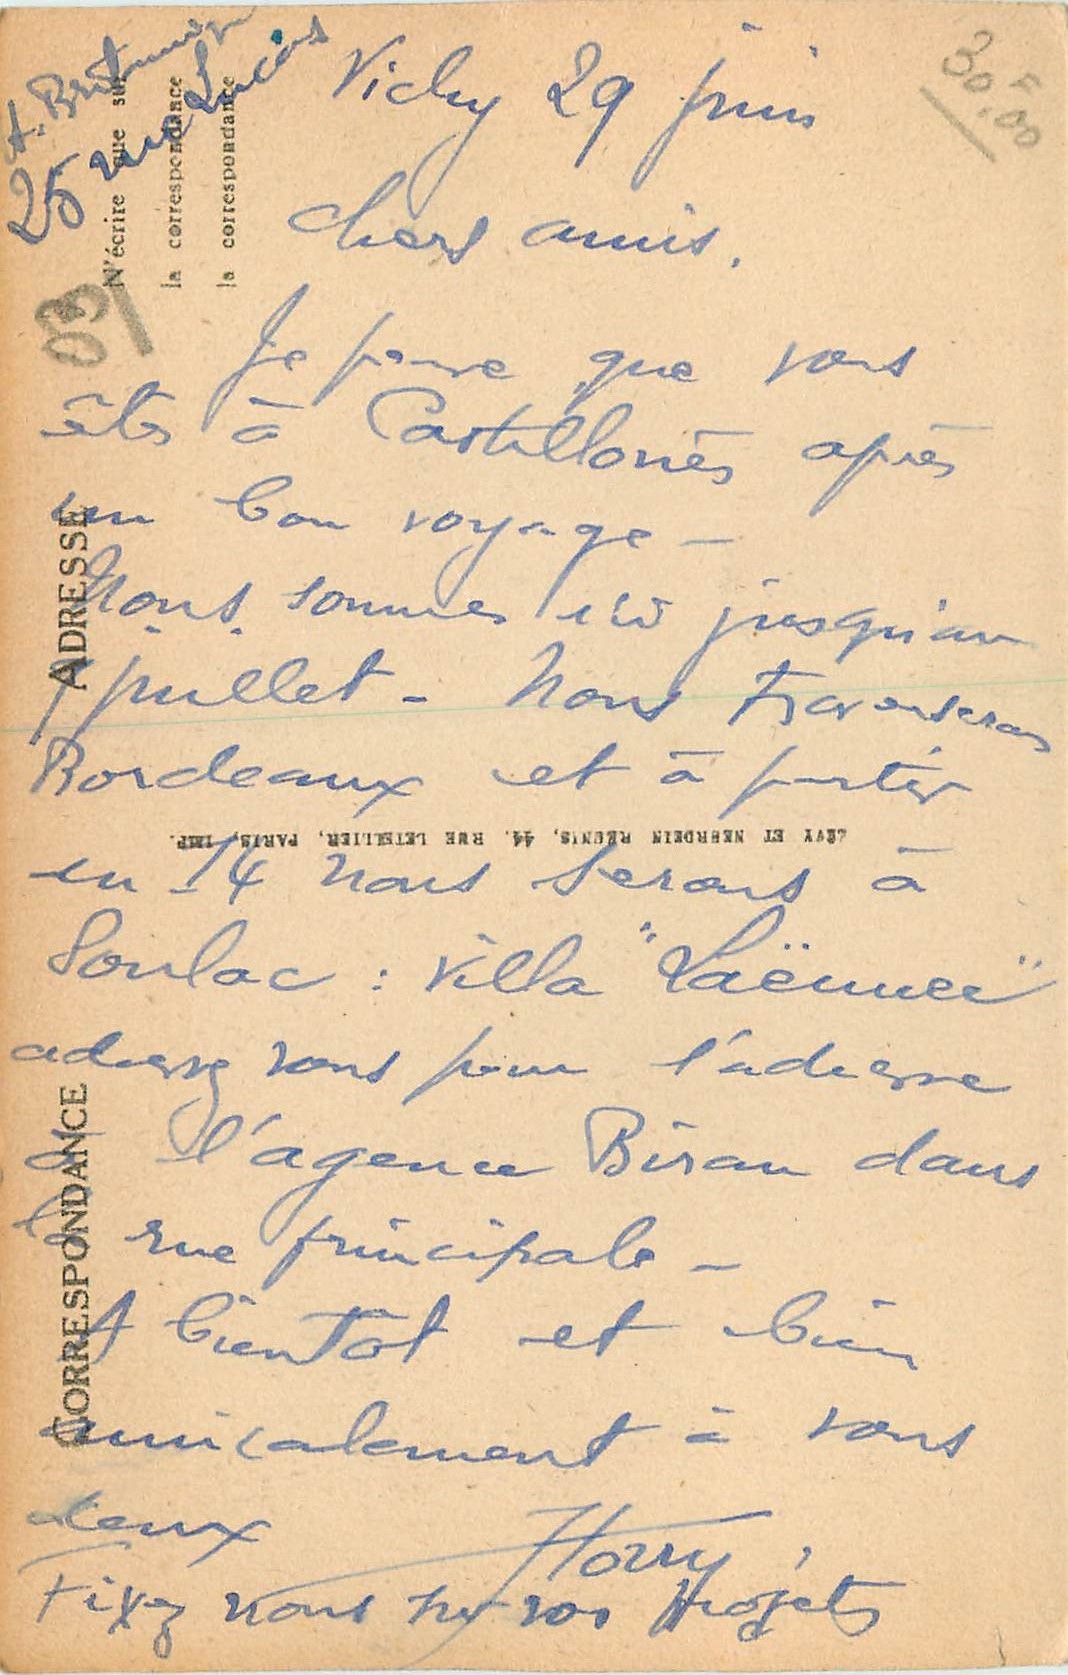 H. Britannique
25 rue Lucas
N'écrire que sur
la correspondance
la correspondance
30,F00
03
Vichy 29 juin
Chers amis.
Je pense que vous
êtes à Castillonès après
un bon voyage -
Nous sommes ici jusqu'au
7 juillet - Nous traverserons
Bordeaux et à partir
LÉVY ET NEURDEIN RÉUNIS, 44, RUE LETELLIER, PARIS, IMP.
du 14 nous serons à
Soulac : villa "Laënnec"
adressez vous pour l'adresse
à l'agence Biran dans
la rue principale -
A bientôt et bien
amicalement à vous
deux Horry
Fixez nous sur vos projets
ADRESSE
CORRESPONDANCE